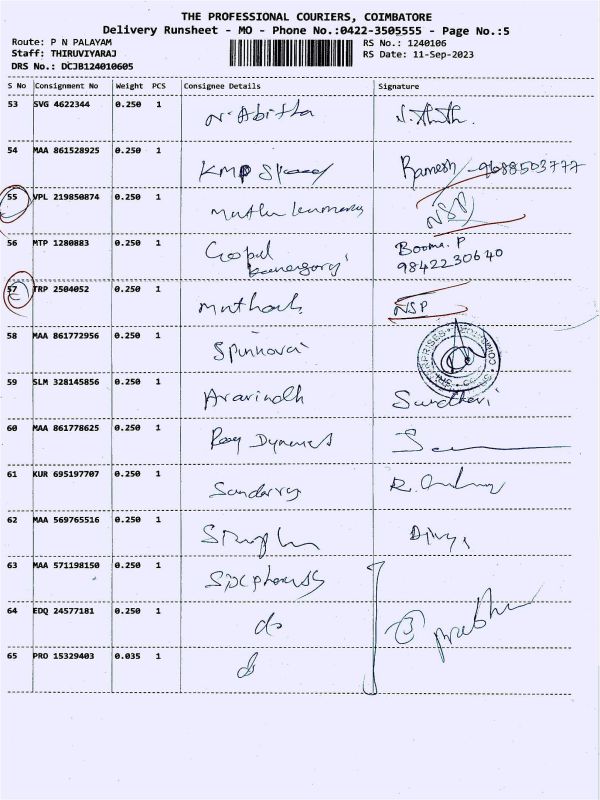 THE PROFESSIONAL COURIERS, COIMBATORE
Delivery Runsheet - MO - Phone No.:0422-3505555 - Page No.:5
Route: P N PALAYAM
Staff: THIRUVIYARAJ
DRS No.: DCJB124010605
RS No.: 1240106
RS Date: 11-Sep-2023
S No Consignment No Weight PCS Consignee Details Signature
53 SVG 4622344 0.250 1 N. Abitha
54 MAA 861528925 0.250 1 KMP Ramesh 9688503777
55 VPL 219850874 0.250 1 Muthu kumar NSP
56 MTP 1280883 0.250 1 Gopal Booma. P
9842230640
57 TRP 2504052 0.250 1 NSP
58 MAA 861772956 0.250 1
59 SLM 328145856 0.250 1 Aravindh
60 MAA 861778625 0.250 1
61 KUR 695197707 0.250 1 R.
62 MAA 569765516 0.250 1
63 MAA 571198150 0.250 1
64 EDQ 24577181 0.250 1 do Prabhu
65 PRO 15329403 0.035 1